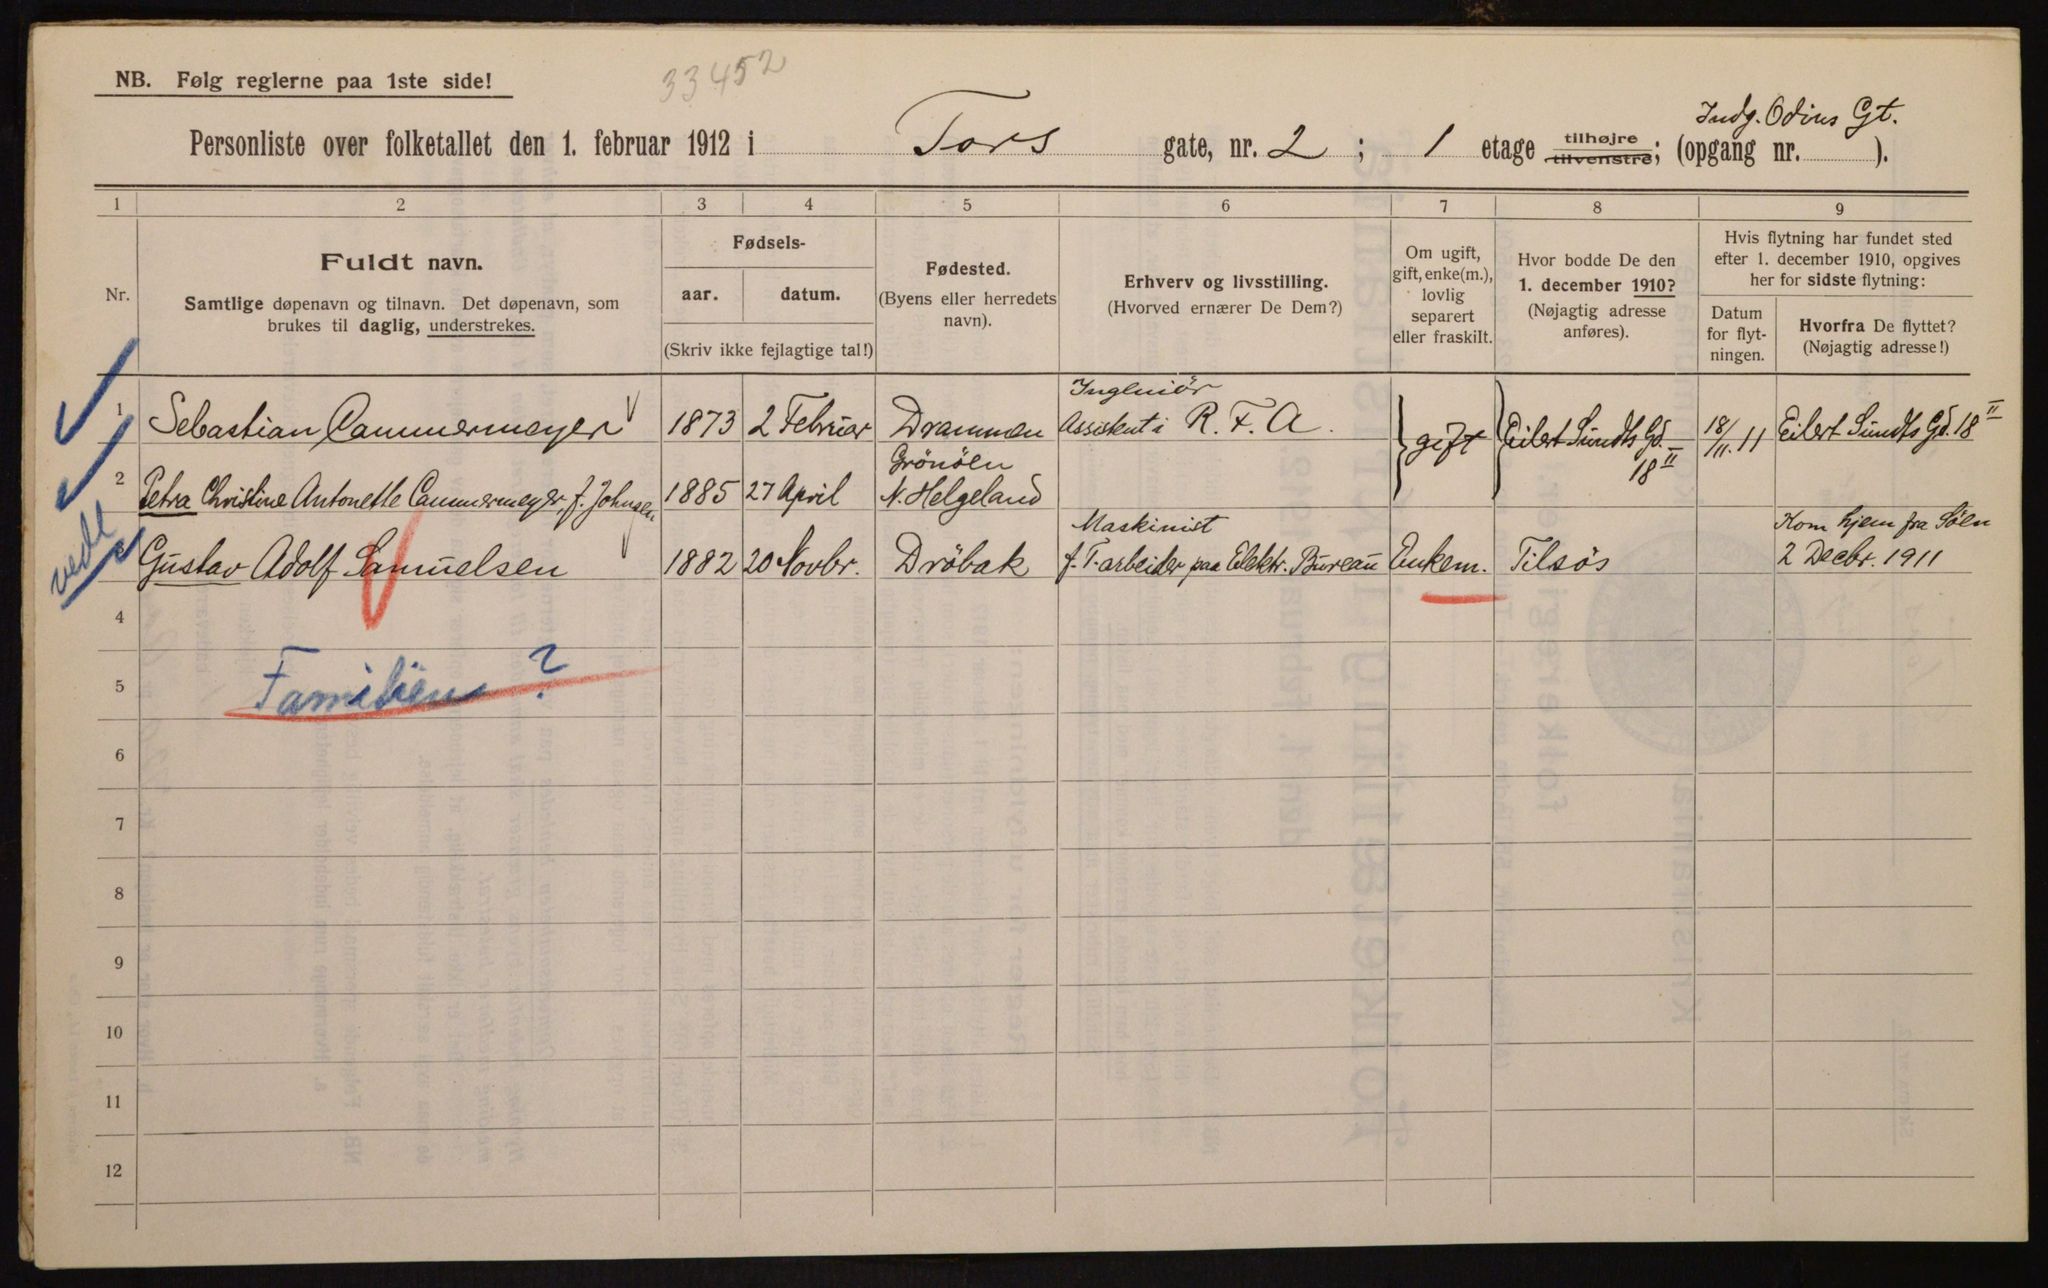 NB. Følg reglerne paa 1ste side!
33452
Indg. Odins Gt.
Personliste over folketallet den 1. februar 1912 i Tors gate, nr. 2; 1 etage tilhøjre tilvenstre; (opgang nr. ).
1 2 3 4 5 6 7 8 9
Nr.
Fuldt navn.
Samtlige døpenavn og tilnavn. Det døpenavn, som
brukes til daglig, understrekes.
Fødsels-
aar. datum.
(Skriv ikke fejlagtige tal!)
Fødested.
(Byens eller herredets
navn).
Erhverv og livsstilling.
(Hvorved ernærer De Dem?)
Om ugift,
gift, enke(m.),
lovlig
separert
eller fraskilt.
Hvor bodde De den
1. december 1910?
(Nøjagtig adresse
anføres).
Hvis flytning har fundet sted
efter 1. december 1910, opgives
her for sidste flytning:
Datum
for flyt-
ningen.
Hvorfra De flyttet?
(Nøjagtig adresse!)
Ingeniör
1 Sebastian Cammermeyer 1873 2 Februar Drammen Assistent i R. F. A. gift Eilert Sundts Gd. 18 II 18/11.11 Eilert Sundts Gd. 18 II
Grönöen
2 Petra Christine Antonette Cammermeyer, f. Johnsen 1885 27 April N. Helgeland
vedl
Maskinist
Kom hjem fra Söen
3 Gustav Adolf Samuelsen 1882 20 Novbr. Dröbak f. T. arbeider paa Elektr. Bureau Enkem. Tilsøs 2 Decbr. 1911
4
Familien?
5
6
7
8
9
10
11
12